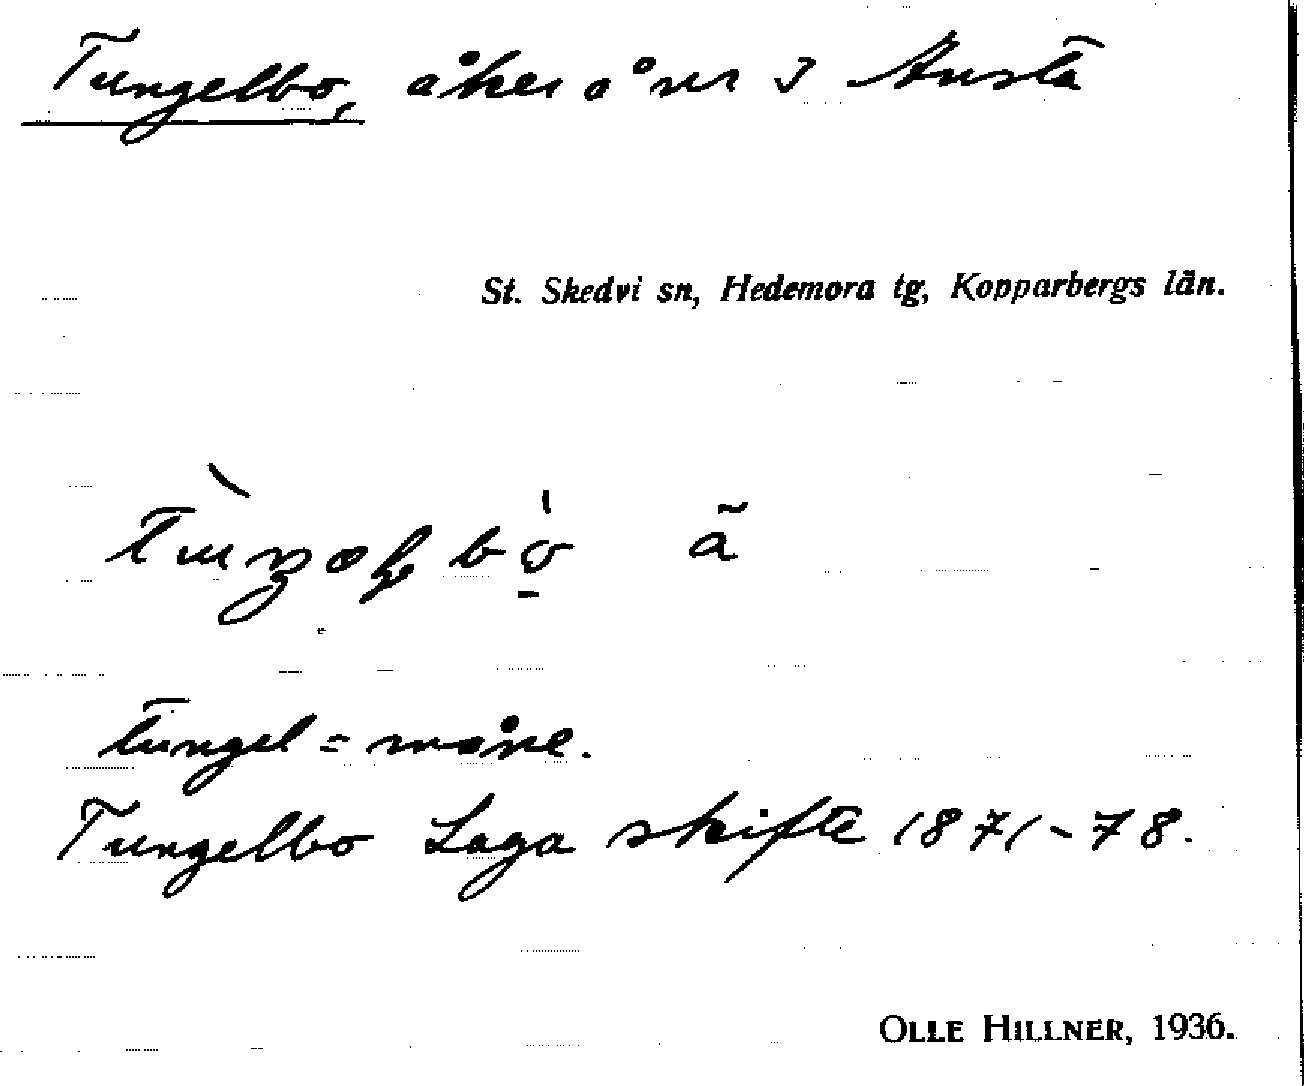 Tungelbo, åker å nr 3 Ansta
St. Skedvi sn, Hedemora tg, Kopparbergs län.
ã
tungel = måne.
Tungelbo Laga skifte 1871-78.
OLLE HILLNER, 1936.